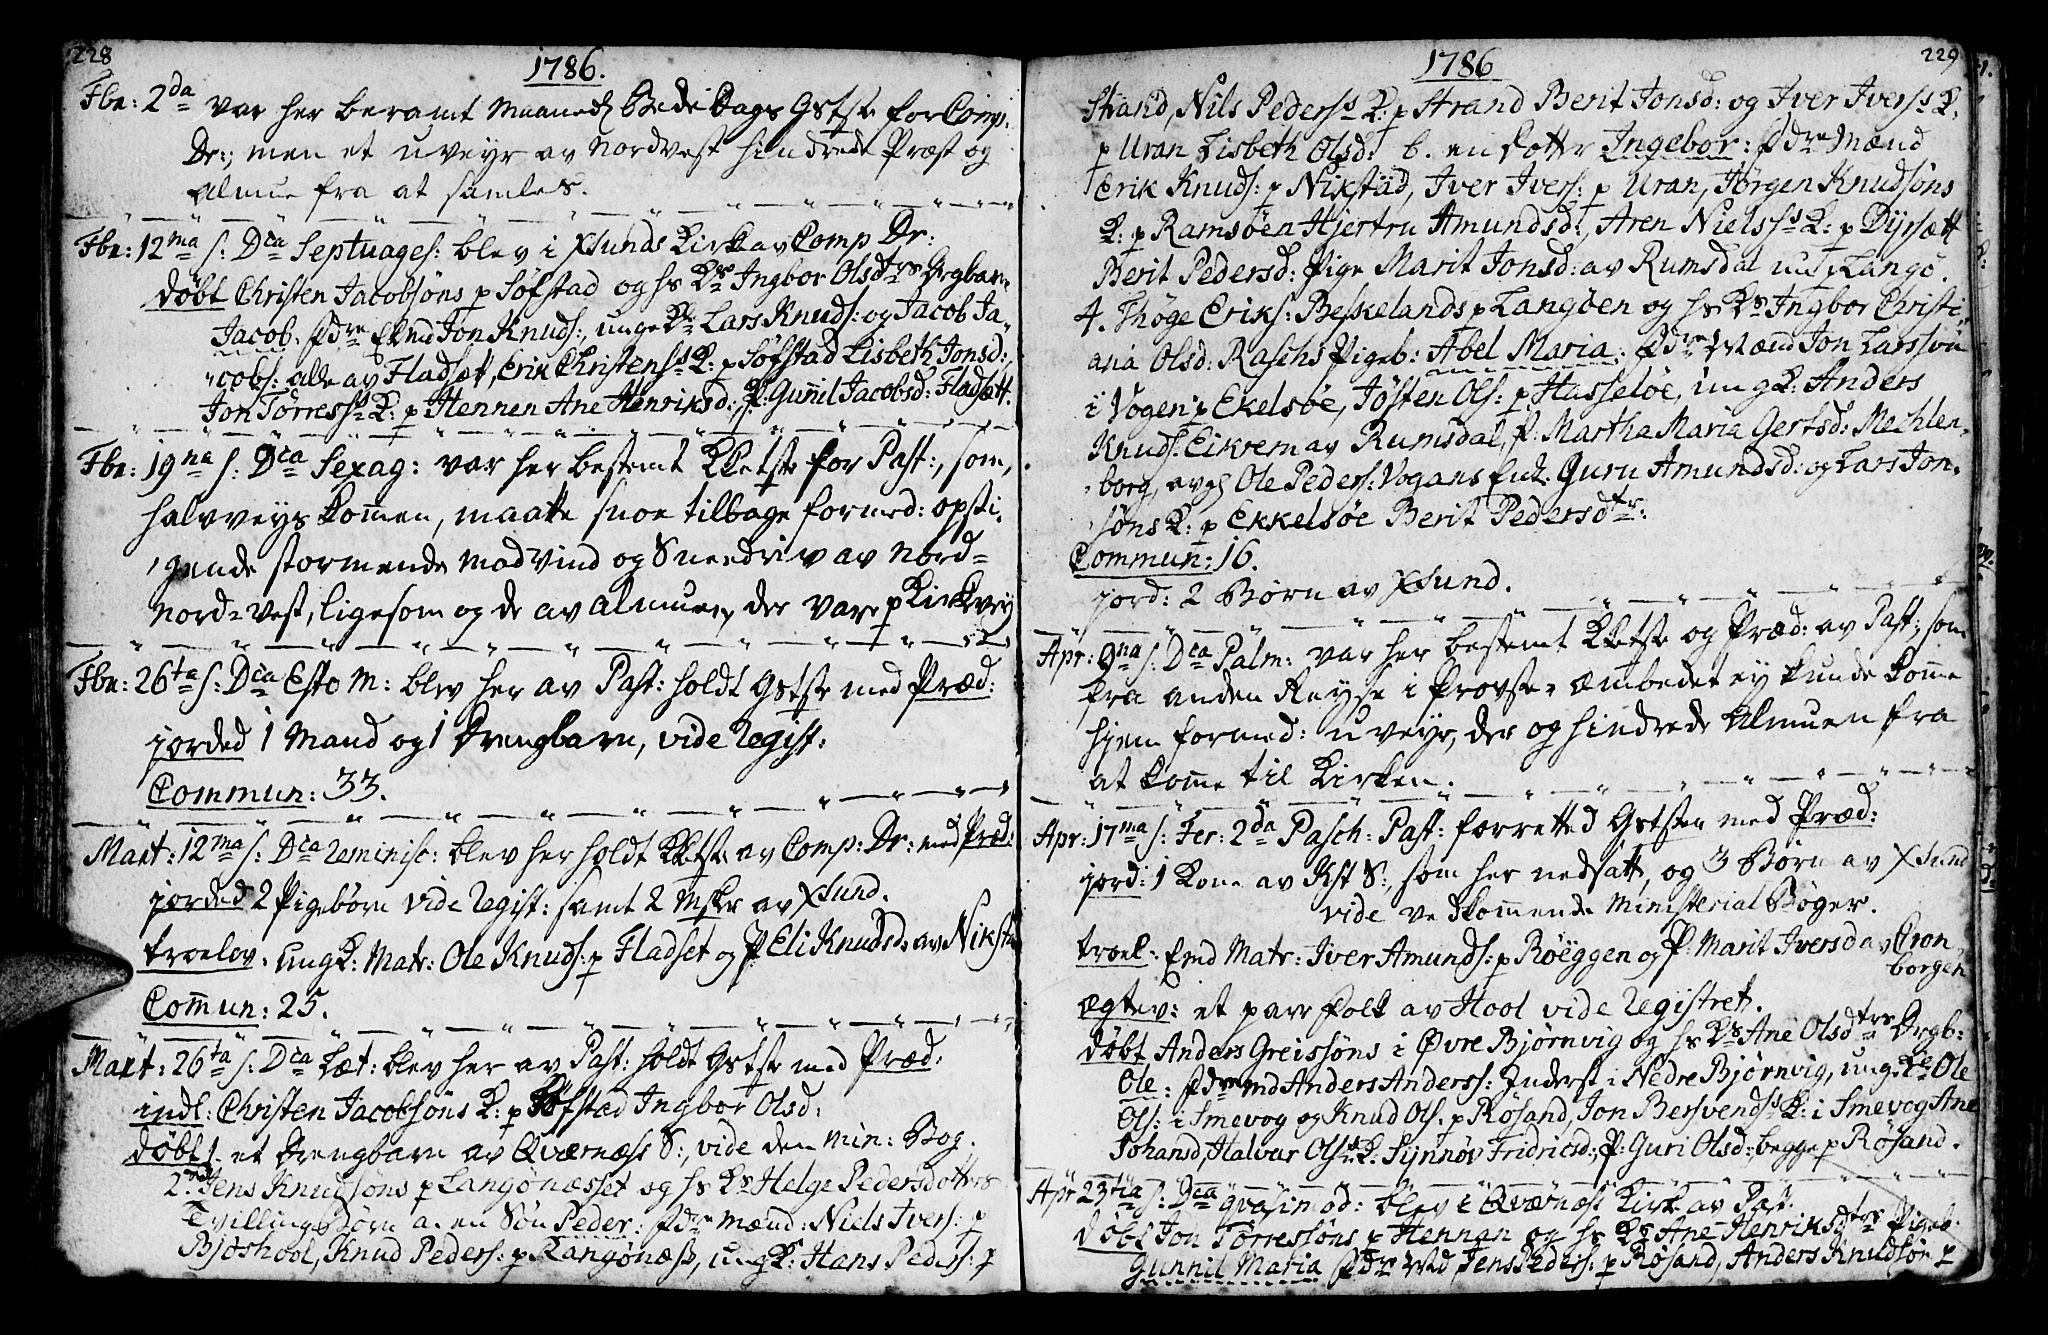 228
1786.
Fbr: 2da var her beramt Maaneds Bede Dags Gstste for Comp:
Dr:, men et uveyr av Nordvest hindrede Præst og
Almue fra at samles.
Fbr: 12ma s: Dca Septuages: blev i Xsunds Kirke av Comp Dr:
döbt Christen Jacobsöns p Söfstad og hs Ks Ingbor Olsdtrs Drgbarn
Jacob. fdre Emd Jon Knuds:, unge Ke Lars Knuds: og Jacob Ja-
cobs: alle av Fladset, Erik Christenss K: p Söfstad Lisbeth Jonsd:,
Jon Torress K: p Hennen Ane Henriksd:, P: Gunnil Jacobsd: Fladsett.
Fbr: 19na s: Dca Sexag: var her bestemt Kketste for Past:, som,
halvveys kommen, maatte snoe tilbage formed: opsti-
gende stormende modvind og Sneedriv av Nord=
Nord=vest, ligesom og de av Almuen, der vare p Kirkvey
Fbr: 26ta s: Dca Esto M: blev her av Past: holdt Gstste med Præd:
jorded 1 Mand og 1 Drengbarn, vide Regist:
Commun: 33.
Mart: 12ma s: Dca Reminisc: blev her holdt Kketste av Comp: Dr: med Præd:
jorded 2 Pigebörn vide Regist: samt 2 Mskr av Xsund.
troelov. ungK: Matr: Ole Knuds: p Fladset og P Eli Knudsd: av Nikstad
Commun: 25.
Mart: 26ta s: Dca Læt: blev her av Past: holdt Gstste med Præd:
indl: Christen Jacobsöns K: p Söfstad Ingbor Olsd:
döbt 1. et Drengbarn av Qværnæss S:, vide den Min: Bog.
2. Jens Knudsöns p Langönæsset og hs Ks Helge Pedersdotters
Tvillingbörn a. en Sön Peder: fdre Mænd: Niels Ivers: p
Bjöshool, Knud Peders: p Langönæss, ungK: Hans Peders: p
229
1786
Strand, Nils Pederss K: p Strand Berit Jonsd: og Iver Iverss K:
p Uran Lisbeth Olsd: b. en dotter Ingebor: fdre Mænd
Erik Knuds: p Nikstad, Iver Ivers: p Uran, Jörgen Knudsöns
K: p Ramsöen Hjertru Amundsd:, Aren Nielss K: p Dyrsætt
Berit Pedersd: Pige Marit Jonsd: av Rumsdal p Langö.
4. Thöge Eriks: Beskelands p Langöen og hs Ks Ingbor Christi-
ana Olsd: Raschs Pigeb: Abel Maria: fdre Mænd Jon Larssön
i Vogen p Ekelsöe, Jösten Ols: p Hasselöe, ungK: Anders
Knuds: Eikrem av Rumsdal, P: Martha Maria Gertsd: Mechlen-
borg, avgs Ole Peders: Vogans Enk: Guru Amundsd: og Lars Jon-
söns K: p Ekkelsöe Berit Pedersdtr:
Commun: 16.
jord: 2 Börn av Xsund.
Apr: 9na s: Dca Palm: var her bestemt Kketste og Præd: av Past:, som
fra anden Reyse i Provste-Æmbedet ey kunde komme
hjem formed: uveyr, der og hindrede Almuen fra
at komme til Kirken.
Apr: 17ma s: Fer: 2da Pasch: Past: forretted Gststen med Præd:
jord: 1 Kone av Kst S:, som her nedsatt, og 3 Börn av Xsund
vide vedkommende Ministerial Böger.
troel: Emd Matr: Iver Amunds: p Röeggen og P: Marit Iversd av Cron-
borgen
Ægtev: et parr Folk av Hool vide Registret.
döbt Anders Greissöns i Övre Björnvig og hs Ks Ane Olsdtrs Drgb:
Ole: fdre md Anders Anderss: Inderst i Nedre Björnvig, unge Ke Ole
Ols: i Smevog og Knud Ols: p Rösand, Jon Bersvendss K: i Smevog Ane
Johansd, Halvar Olss K: Synnöv Fridricsd:, P: Guri Olsd: begge p Rösand.
Apr 23tia s: Dca qvasimod: blev i Qværnæss Kirke av Past:
döbt Jon Torressöns p Hennan og hs Ks Ane Henriksdtrs Pigeb:
Gunnil Maria fdre Md Jens Peders: p Rösand, Anders Knudsön p